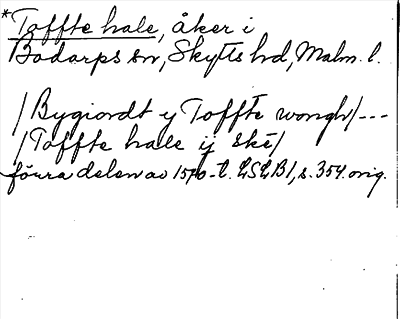 *Toffte hale, åker i
Bodarps sn, Skytts hd, Malm. l.
/Bygiordt y Toffte wongh/---
/Toffte hale ij ske/
förra delen av 1570-t. LSLB1, s. 354. orig.